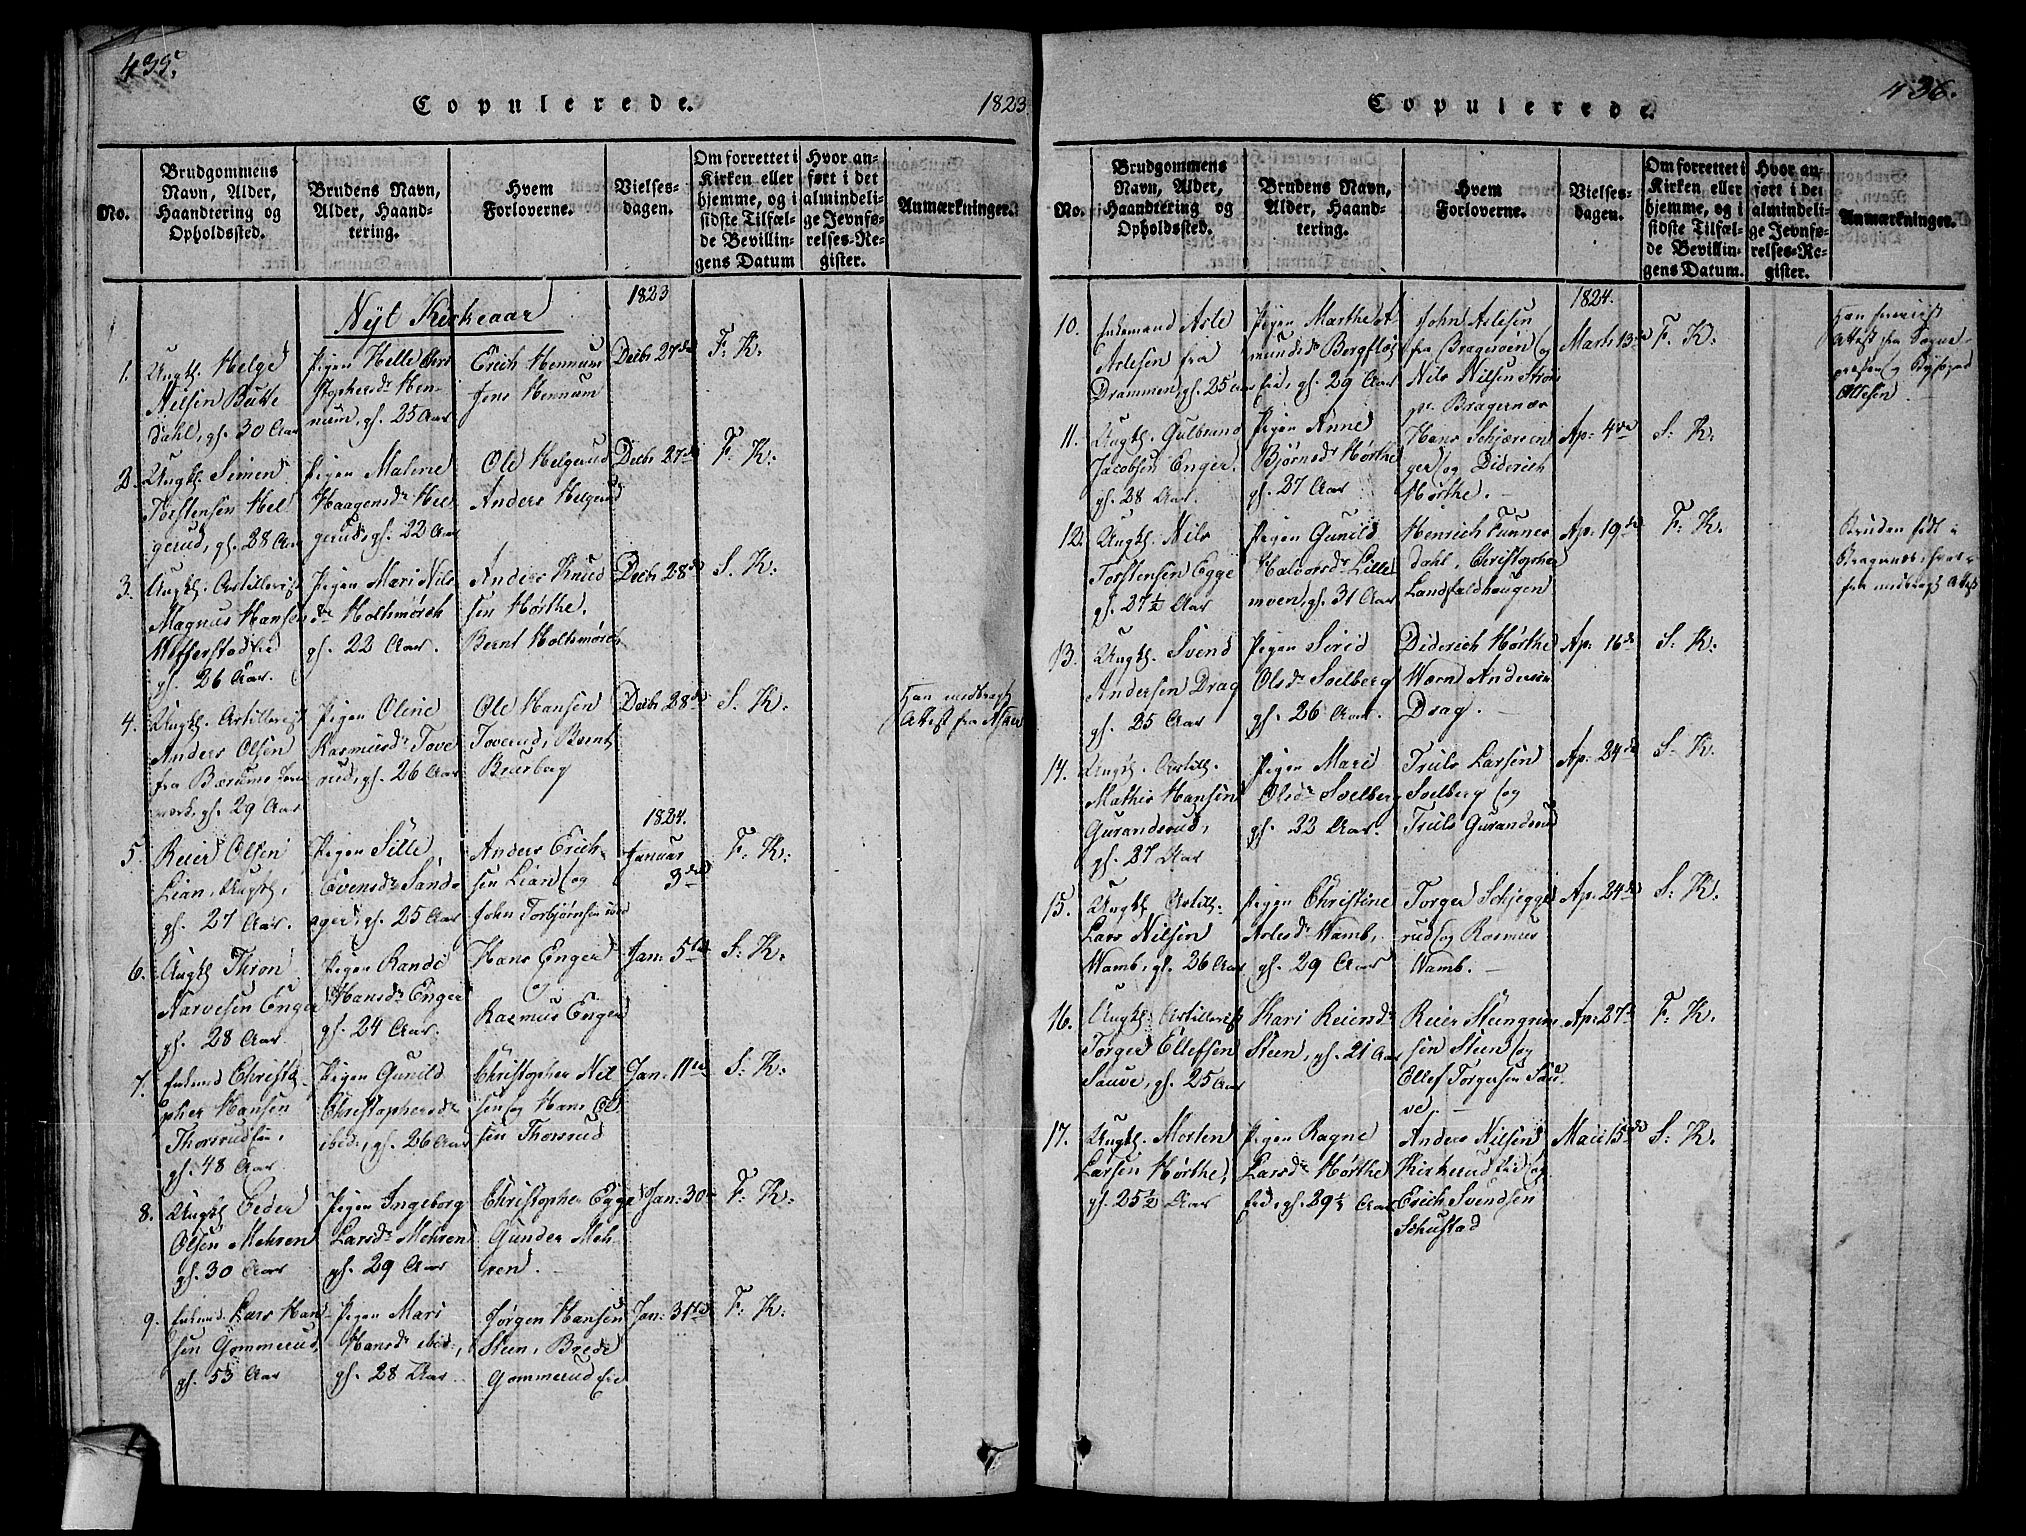 435.
Copulerede.
1823
No.
Brudgommens
Navn, Alder,
Haandtering og
Opholdssted.
Brudens Navn,
Alder, Haand-
tering.
Hvem
Forloverne.
Vielses-
dagen.
Om forrettet i
Kirken eller
hjemme, og i
sidste Tilfæl-
de Bevillin-
gens Datum
Hvor an-
ført i det
almindeli-
ge Jevnfø-
relses-Re-
gister.
Anmærkninger.
1823
Nyt Kirkeaar
1.
Ungk. Helge
Nilsen Butte
dahl, gl. 30 Aar
Pigen Helle Chri
stophersdr Hen-
num, gl. 25 Aar
Erich Hennum
Jens Hennum
Decbr 27de
F. K.
2.
Ungk. Simen
Torstensen Hel
gerud, gl. 28 Aar
Pigen Malene
Haagensdr Hel
gerud, gl. 22 Aar
Ole Helgerud
Anders Helgerud
Decbr 27de
F. K.
3.
Ungk. Artillerist
Magnus Hansen
gl. 26 Aar.
Pigen Mari Nils
dr Holtsmörch
gl. 22 Aar.
Anders Knud
sen Hörthe.
Bernt Holtsmörch
Decbr 28de
S. K.
4.
Ungk. Artillerist
Anders Olsen
fra Bærums Jern
værk, gl. 29 Aar
Pigen Oline
Rasmusdr Tove
rud, gl. 26 Aar
Ole Hansen
Toverud, Bernt
Beurberg
Decbr 28de
S. K.
Han medbragt
Attest fra Asker
1824.
5.
Reier Olsen
Lian, Ungk.
gl. 27 Aar.
Pigen Sille
Evensdr Sand-
ager, gl. 25 Aar
Anders Erich-
sen Lian og
John Torbjørnsen ibid
Januar
3de
F. K.
6.
Ungk Thron
Narvesen Enger
gl. 28 Aar.
Pigen Randi
Hansdr Enger
gl. 24 Aar.
Hans Enger
og
Rasmus Enger
Jan: 5te
S: K:
7.
Enkemd Christo-
pher Hansen
Thorsrudeie,
gl. 48 Aar.
Pigen Gunild
Christophersdr
ibid:, gl. 26 Aar
Christopher Nil
sen og Hans Ol
sen Thorsrud
Jan: 11te
S: K:
8.
Ungk Peder
Olsen Mehren
gl. 30 Aar
Pigen Ingeborg
Larsdr Mehren
gl. 29 Aar
Christopher Egge
Gunder Meh-
ren.
Jan: 30
F: K:
9.
Enkemd Lars Han-
sen Gommerud,
gl. 53 Aar
Pigen Mari
Hansdr ibid:,
gl. 28 Aar.
Jørgen Hansen
Steen, Brede
Gommerud eie
Jan: 31te
F: K:
436.
Copulerede.
No.
Brudgommens
Navn, Alder,
Haandtering og
Opholdssted.
Brudens Navn,
Alder, Haand-
tering.
Hvem
Forloverne.
Vielses-
dagen.
Om forrettet i
Kirken eller
hjemme, og i
sidste Tilfæl-
de Bevillin-
gens Datum.
Hvor an-
ført i det
almindeli-
ge Jevnfø-
relses-Re-
gister.
Anmærkninger.
1824.
10.
Enkemand Asle
Aslesen fra
Drammen, gl. 25 Aar
Pigen Marthe A
mundsdr Bergfløt
eie, gl. 29 Aar
John Aslesen
fra Bragerøen og
Nils Nilsen Strøm
pr. Bragernæs
Marts 13de
F. K:
Han forevist
Attest fra Sogne-
præsten og
11.
Ungk. Gulbrand
Jacobsen Enger.
gl. 28 Aar.
Pigen Anne
Bjørnsdr Hørthe
gl. 27 Aar
Hans Schjæreen
ger og Diderich
Hørthe.
Ap: 4de
S: K:
12.
Ungk. Nils
Torstensen Egge
gl. 27½ Aar
Pigen Gunild
Halvorsdr Lille
moen, gl. 31 Aar
Henrich Tunner
dahl, Christopher
Landfaldhougen
Ap: 19de
F: K:
Bruden født i
Bragernæs, hvor-
fra medbragt Attest
13.
Ungk. Svend
Andersen Drag
gl. 25 Aar
Pigen Sirid
Olsdr Solberg
gl. 26 Aar.
Diderich Hørthe
Warn Andersen
Drag.
Ap: 16de
S: K:
14.
Ungk. Artill.
Mathis Hansen
Gurandsrud,
gl. 27 Aar
Pigen Mari
Olsdr Solberg
gl. 22 Aar.
Truls Larsen
Solberg og
Truls Gurandsrud
Ap: 24de
S: K:
15.
Ungk. Artill.
Lars Nilsen
Wamb, gl. 26 Aar
Pigen Christine
Aslesdr Wamb,
gl. 29 Aar
Torger Schjegge
rud og Rasmus
Wamb.
Ap: 24de
S: K:
16.
Ungk. Artillerist
Torger Ellefsen
Sauve, gl. 25 Aar
Kari Reiersdr
Steen, gl. 21 Aar
Reier Steingrim
sen Steen og
Ellef Torgersen Sau-
ve.
Ap: 27
F: K.
17.
Ungk. Morten
Larsen Hørthe,
gl. 25½ Aar
Pigen Ragne
Larsdr Hørthe
eie, gl. 29½ Aar
Anders Nilsen
Kirkerud eie og
Erich Svendsen
Schustad
Maii 15de
S: K.